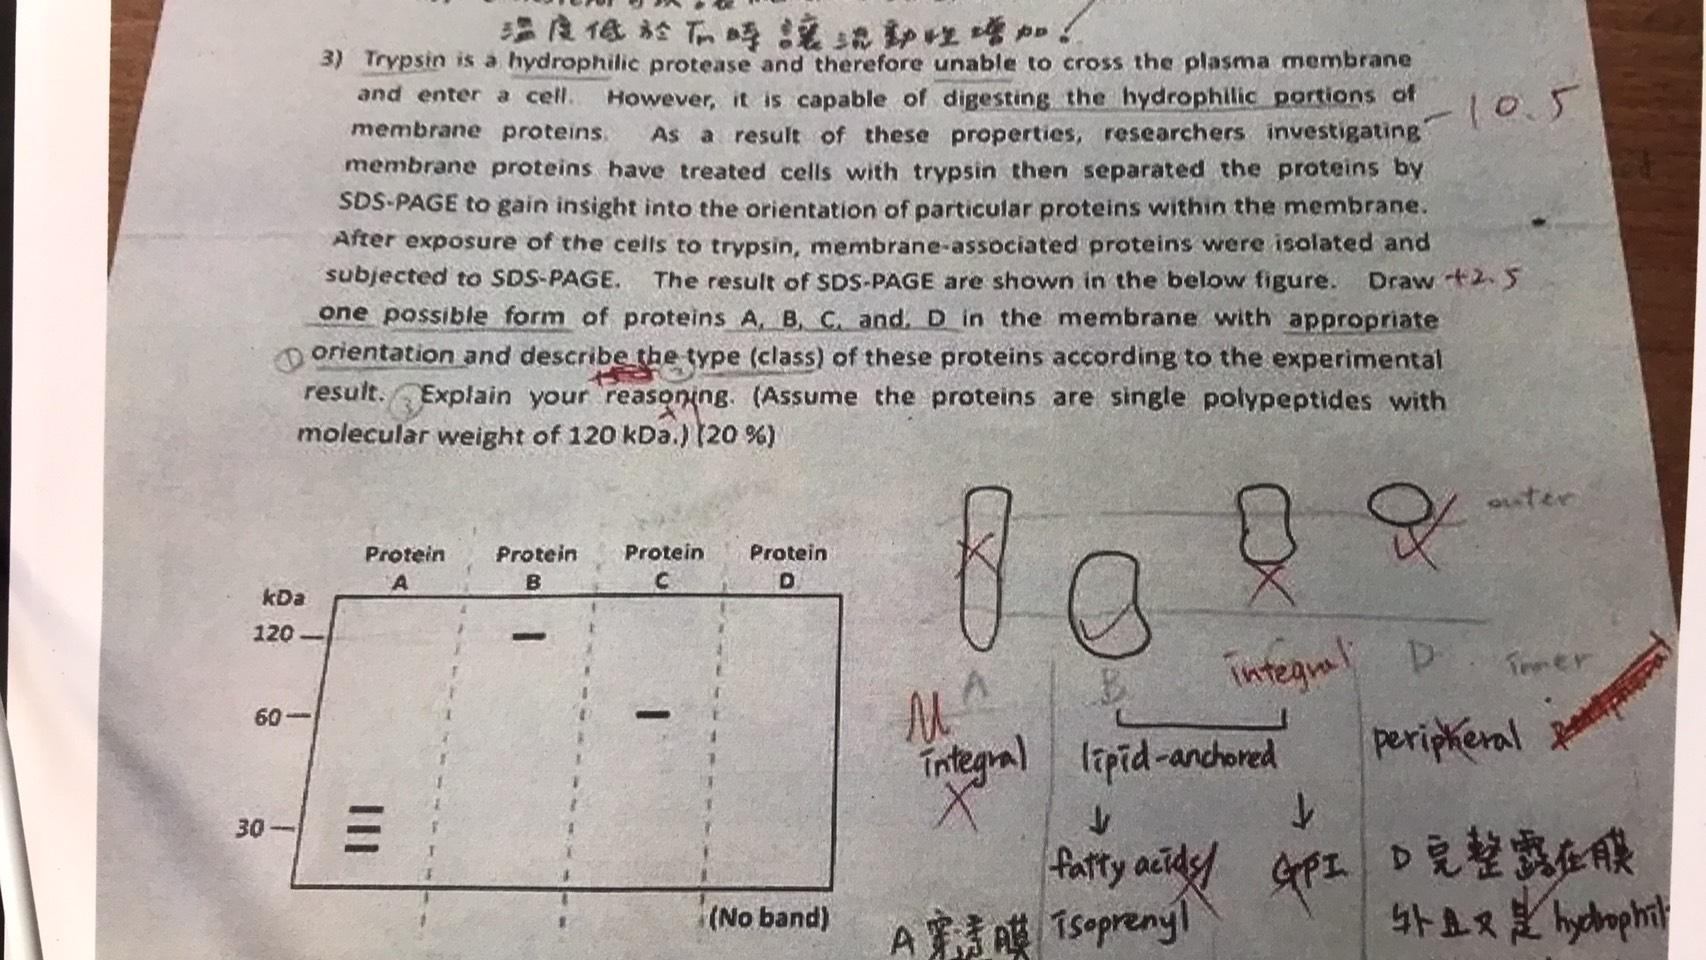 温度低於Tm時讓流動性增加!
3) Trypsin is a hydrophilic protease and therefore unable to cross the plasma membrane
and enter a cell. However, it is capable of digesting the hydrophilic portions of
-10.5
membrane proteins. As a result of these properties, researchers investigating
membrane proteins have treated cells with trypsin then separated the proteins by
SDS-PAGE to gain insight into the orientation of particular proteins within the membrane.
After exposure of the cells to trypsin, membrane-associated proteins were isolated and
subjected to SDS-PAGE. The result of SDS-PAGE are shown in the below figure. Draw
+2.5
one possible form of proteins A, B, C, and, D in the membrane with appropriate
① orientation and describe the type (class) of these proteins according to the experimental
result. Explain your reasoning. (Assume the proteins are single polypeptides with
molecular weight of 120 kDa.) (20 %)
outer
Protein A
Protein B
Protein C
Protein D
kDa
120
60
30
(No band)
A
B
integral
D
inner
M
integral
lipid-anchored
peripheral
↓
↓
fatty acids/
GPI
D 完整露在膜
isoprenyl
外且又是 hydrophil
A 穿透膜